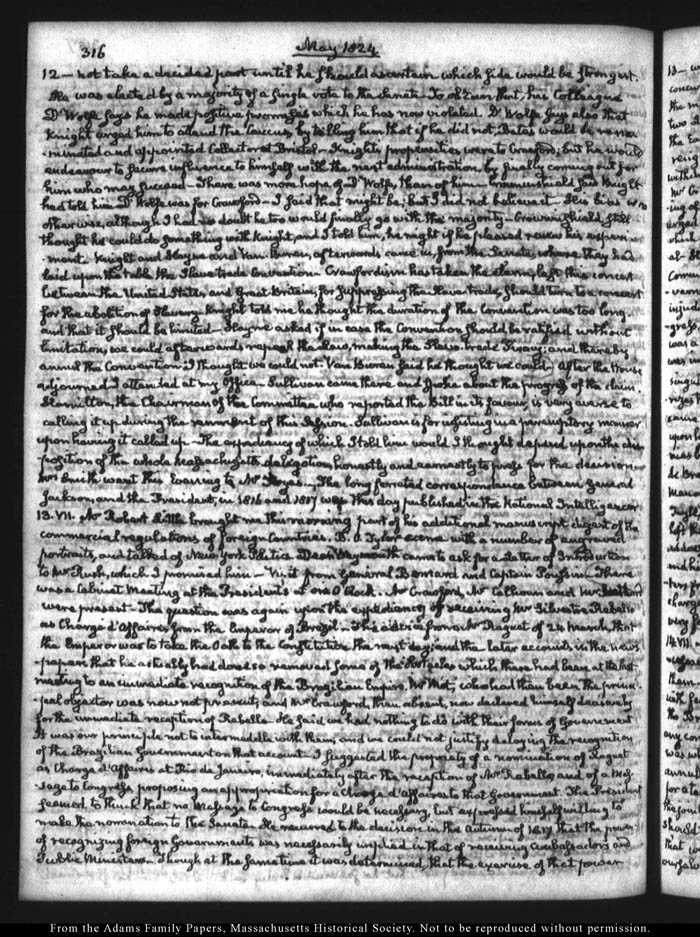 316 May 1824
12 — not take a decided part until he should ascertain which side would be strongest.
He was elected by a majority of a single vote to the Senate. To obtain that, his Colleague
D'Wolfe says he made positive promises which he has now violated. D'Wolfe says also that
Knight urged him to attend the Caucus, by telling him that if he did not, Bates would be renom
-inated and appointed Collector at Bristol. Knight's propensities were to Crawford; but he would
endeavour to secure influence to himself with the next administration, by finally coming out for
him who may succeed — There was more hope of D'Wolfe, than of him — Crowninshield said Knight
had told him D'Wolfe was for Crawford — I said that might be; but I did not believe it. His bias was
otherwise, although I had no doubt he too would finally go with the majority — Crowninshield still
thought he could do something with Knight, and I told him, he might if he pleased renew his experi-
-ment. Knight and Hayne and Van Buren, afterwards came in, from the Senate, where they had
laid upon the table the Slave trade Convention. Crawfordism has taken the alarm, lest this concert
between the United States and Great Britain, for suppressing the Slave trade, should turn to a concert
for the abolition of Slavery. Knight told me he thought the duration of the Convention was too long
and that it should be limited — Hayne asked if in case the Convention should be ratified without
limitation, we could afterwards repeal the Law, making the Slave-trade Piracy; and thereby
annul the Convention. I thought we could not. Van Buren said he thought we could, after the House
adjourned I attended at my Office — Sullivan came there and spoke about the progress of the claim.
Hamilton, the Chairman of the Committee who reported the Bill in its favour, is very averse to
calling it up during the remnant of this Session. Sullivan is for insisting in a peremptory manner
upon having it called up — The expediency of which I told him would I thought depend upon the dis-
position of the whole Massachusetts delegation, honestly and earnestly to press for the decision.
Mrs Smith went this evening to Mr The long ferreted correspondence between General
Jackson, and the President, in 1816 and 1817 was this day published in the National Intelligencer
13. VII. Mr Robert Little brought me this morning part of his additional manuscript digest of the
commercial regulations of foreign Countries. B. O. Tyler came with a number of engraved
portraits, and talked of New York Politics. Dean Weymouth came to ask for a Letter of Introduction
to Mr Rush, which I promised him — Visit from General Bernard and Captain Poussin — There
was a Cabinet Meeting at the President's at one O'Clock. Mr Crawford, Mr Calhoun and Mr
were present — The question was again upon the expediency of receiving Mr Silvestre Rebello
as Chargé d'Affaires from the Emperor of Brazil — The advices from Mr Raguet of 24 March, that
the Emperor was to take the Oath to the Constitution the next day; and the later accounts in the news-
-papers that he actually had done so removed some of the which there had been at the last
meeting to an immediate recognition of the Brazilian Empire. Mr Wirt, who had then been the princi-
-pal objector was now not present; and Mr Crawford, then absent, now declared himself decisively
for the immediate reception of Rebello. He said we had nothing to do with their forms of Government
It was our principle not to intermeddle with them, and we could not justify delaying the recognition
of the Brazilian Government on that account. I suggested the propriety of a nomination of Raguet
as Chargé d'Affaires at Rio de Janeiro, immediately after the reception of Mr Rebello, and of a Mes-
-sage to Congress proposing an appropriation for a Chargé d'affaires to that Government. The President
seemed to think that no Message to Congress would be necessary, but expressed himself willing to
make the nomination to the Senate. He recurred to the decision in the autumn of 1817 that the power
of recognizing foreign Governments was necessarily implied in that of receiving Ambassadors and
Public Ministers — Though at the same time it was determined, that the exercise of that power
From the Adams Family Papers, Massachusetts Historical Society. Not to be reproduced without permission.